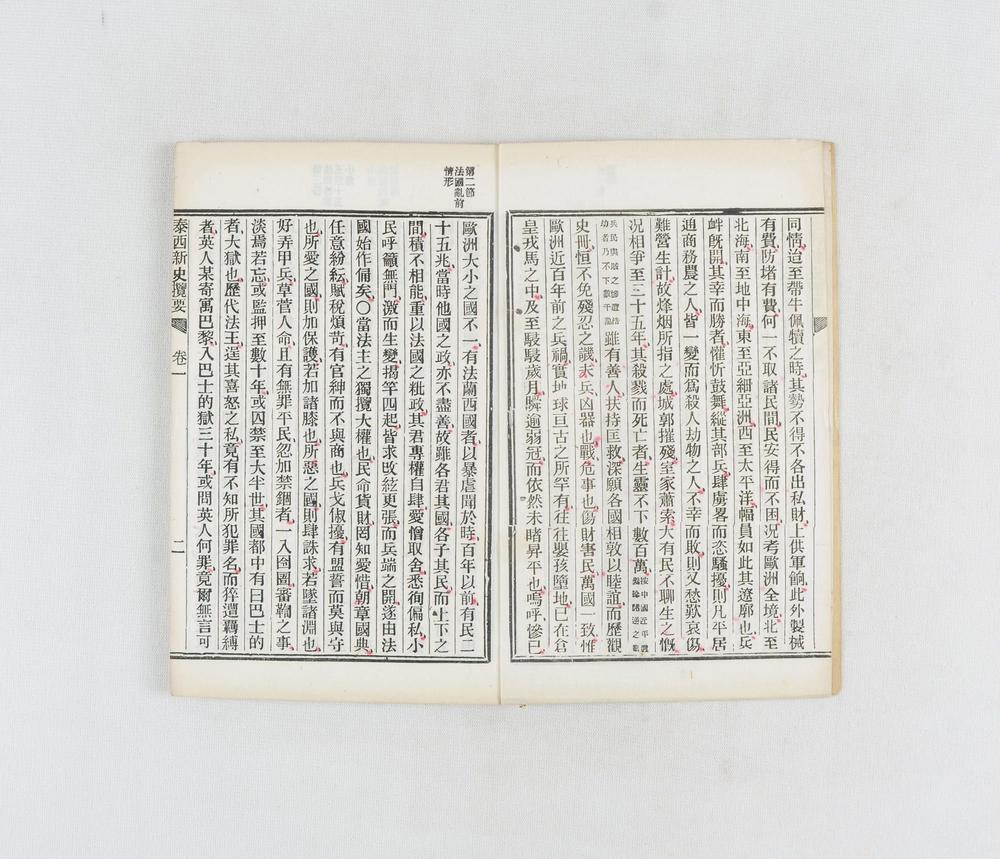 同情迨至帶牛佩犢之時其勢不得不各出私財上供軍餉此外製械
有費防堵有費何一不取諸民間民安得而不困况考歐洲全境北至
北海南至地中海東至亞細亞洲西至太平洋幅員如此其遼廓也兵
衅旣開其幸而勝者懽忻鼓舞縱其部兵肆虜畧而恣騷擾則凡平居
通商務農之人皆一變而爲殺人劫物之人不幸而敗則又愁歎哀傷
難營生計故烽烟所指之處城郭摧殘室家蕭索大有民不聊生之慨
况相爭至二十五年其殺戮而死亡者生靈不下數百萬
雖有善人扶持匡救深願各國相敦以睦誼而歷觀
史冊恒不免殘忍之譏夫兵凶器也戰危事也傷財害民萬國一致惟
歐洲近百年前之兵禍實地球亘古之所罕有往往嬰孩墮地已在倉
皇戎馬之中及至駸駸歲月瞬逾弱冠而依然未睹昇平也嗚呼慘已
第二節
法國亂前
情形
歐洲大小之國不一有法蘭西國者以暴虐聞於時百年以前有民二
十五兆當時他國之政亦不盡善故雖各君其國各子其民而上下之
間積不相能重以法國之粃政其君專權自肆愛憎取舍悉徇偏私小
民呼籲無門激而生變揭竿四起皆求改絃更張而兵端之開遂由法
國始作俑矣〇當法主之獨攬大權也民命貨財罔知愛惜朝章國典
任意紛紜賦稅煩苛有官紳而不與商也兵戈俶擾有盟誓而莫與守
也所愛之國則加保護若加諸膝也所惡之國則肆誅求若墜諸淵也
好弄甲兵草菅人命且有無罪平民忽加禁錮者一入囹圄審鞫之事
淡焉若忘或監押至數十年或囚禁至大半世其國都中有曰巴士的
者大獄也歷代法王逞其喜怒之私竟有不知所犯罪名而猝遭羈縛
者英人某寄寓巴黎入巴士的獄三十年或問英人何罪竟爾無言可
泰西新史攬要 卷一 二